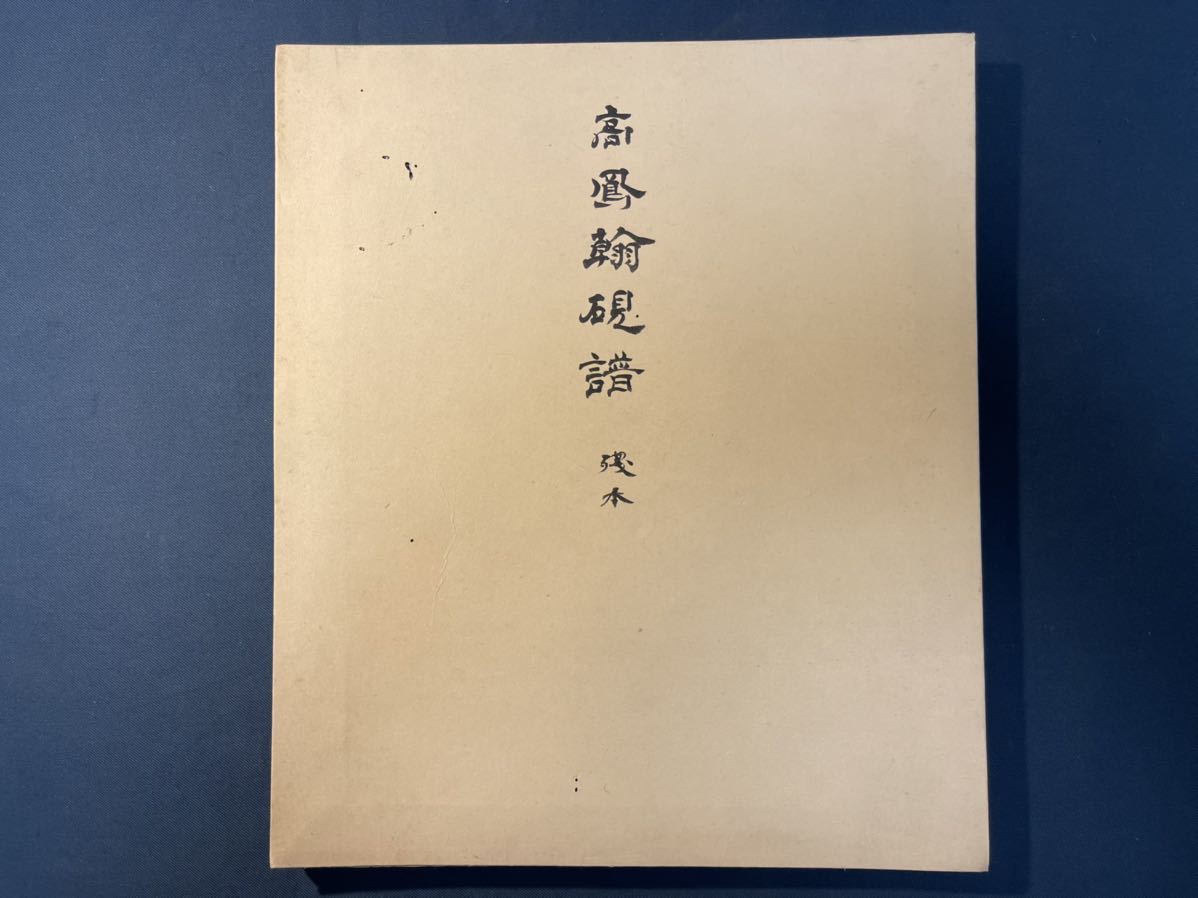 高鳳翰硯譜
殘本